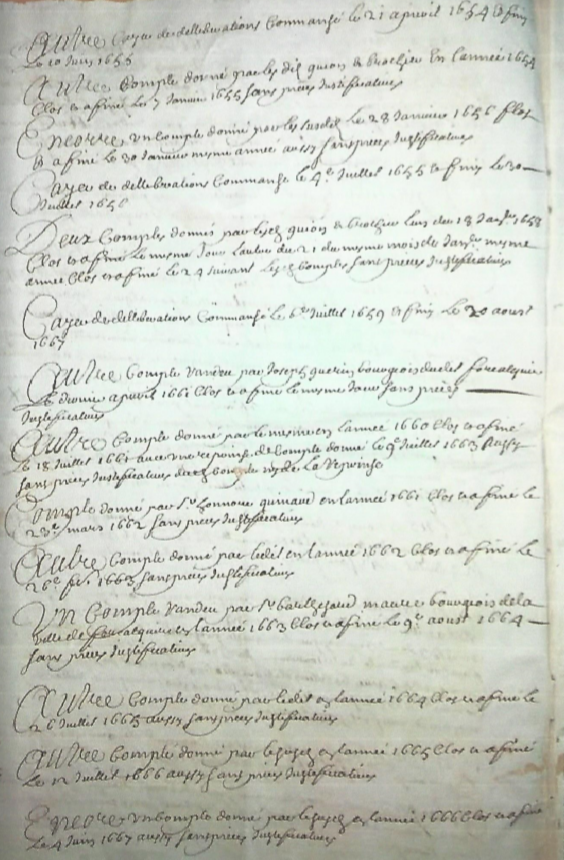 Autre Cayer de delleberations Commansé le 21 apvril 1654 & finy
Le 10 Juin 1655
Autre Compte donné par les dit En lannée 1654
Clos & afiné le 7 Janvier 1655 sans pieces Justificatives
Encorre Un Compte donné par les susdit le 28 Janvier 1656 Clos
& afiné le 30 Janvier mesme année aussy sans pieces Justificatives
Cayer de delleberations Commansé le 4e Juillet 1655 & finy le 30
Juillet 1656
Deux Comptes donnés par Lun du 18 1658
Clos & afiné le mesme Jour Lautre du 21 du mesme mois de mesme
année Clos & afiné le 24 suivant Comptes sans pieces Justificatives
Cayer de delleberations Commansé le 6e Juillet 1659 & finy le 30 aoust
166
Autre Compte Randeu par Joseph bourgeois dudet forcalquier
apvril 1661 Clos & afiné le mesme Jour sans pieces
Justificatives
Autre Compte donné par le mesme en Lannée 1660 Clos & afiné
le 18 Juillet 1661 avec Compte donné le 9e Juillet 1663 Aussy
sans pieces Justificatives
Compte donné par Sr honnoré en Lannée 1661 Clos & afiné le
23e mars 1662 sans pieces Justificatives
Autre Compte donné par ledit en Lannée 1662 Clos & afiné le
26e 1663 sans pieces Justificatives
Un Compte Randeu par Sr maurel bourgeois de la
ville de forcalquier en Lannée 1663 Clos & afiné le 9e aoust 1664
sans pieces Justificatives
Autre Compte donné par ledit en Lannée 1664 Clos & afiné le
26 Juillet 1665 aussy sans pieces Justificatives
Autre Compte donné par en Lannée 1665 Clos & afiné
le 12 Juillet 1666 aussy sans pieces Justificatives
Encorre Un Compte donné par en Lannée 1666 Clos & afiné
le 4 Juin 1667 aussy sans pieces Justificatives